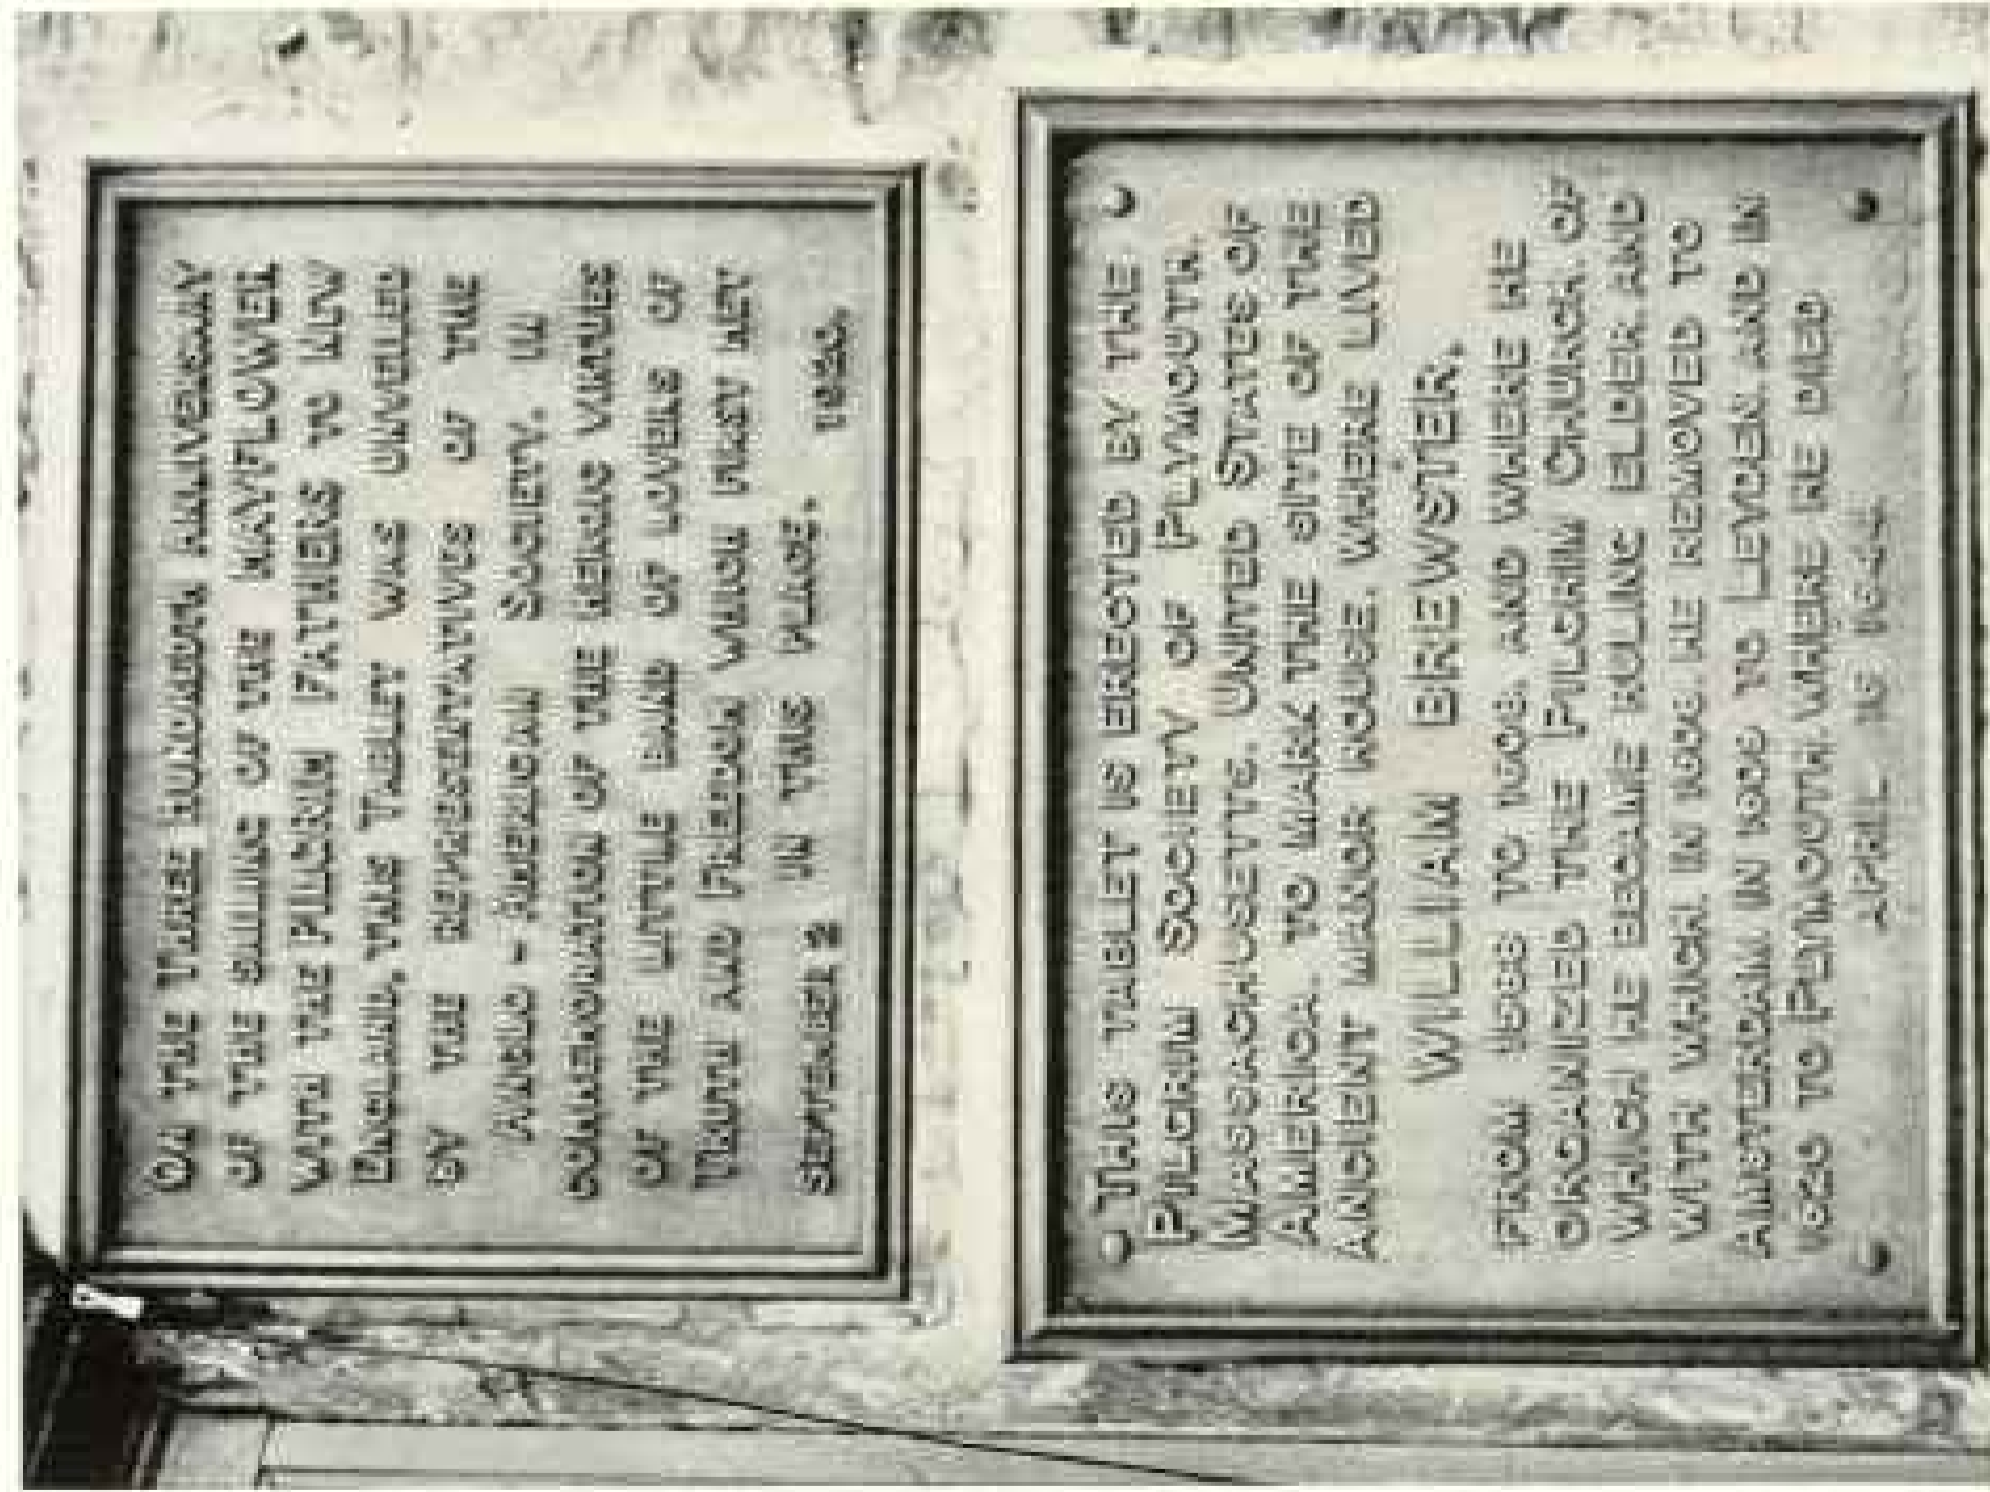 ON THE THREE HUNDREDTH ANNIVERSARY
OF THE SAILING OF THE MAYFLOWER
WITH THE PILGRIM FATHERS TO NEW
ENGLAND, THIS TABLET WAS UNVEILED
BY THE REPRESENTATIVES OF THE
ANGLO - AMERICAN SOCIETY, IN
COMMEMORATION OF THE HEROIC VIRTUES
OF THE LITTLE BAND OF LOVERS OF
TRUTH AND FREEDOM WHICH FIRST MET
IN THIS PLACE.
SEPTEMBER 2 1920.
THIS TABLET IS ERECTED BY THE
PILGRIM SOCIETY OF PLYMOUTH.
MASSACHUSETTS. UNITED STATES OF
AMERICA. TO MARK THE SITE OF THE
ANCIENT MANOR HOUSE. WHERE LIVED
WILLIAM BREWSTER.
FROM 1588 TO 1608. AND WHERE HE
ORGANIZED THE PILGRIM CHURCH. OF
WHICH HE BECAME RULING ELDER. AND
WITH WHICH. IN 1608. HE REMOVED TO
AMSTERDAM. IN 1609 TO LEYDEN. AND IN
1620 TO PLYMOUTH. WHERE HE DIED
APRIL 16 1644